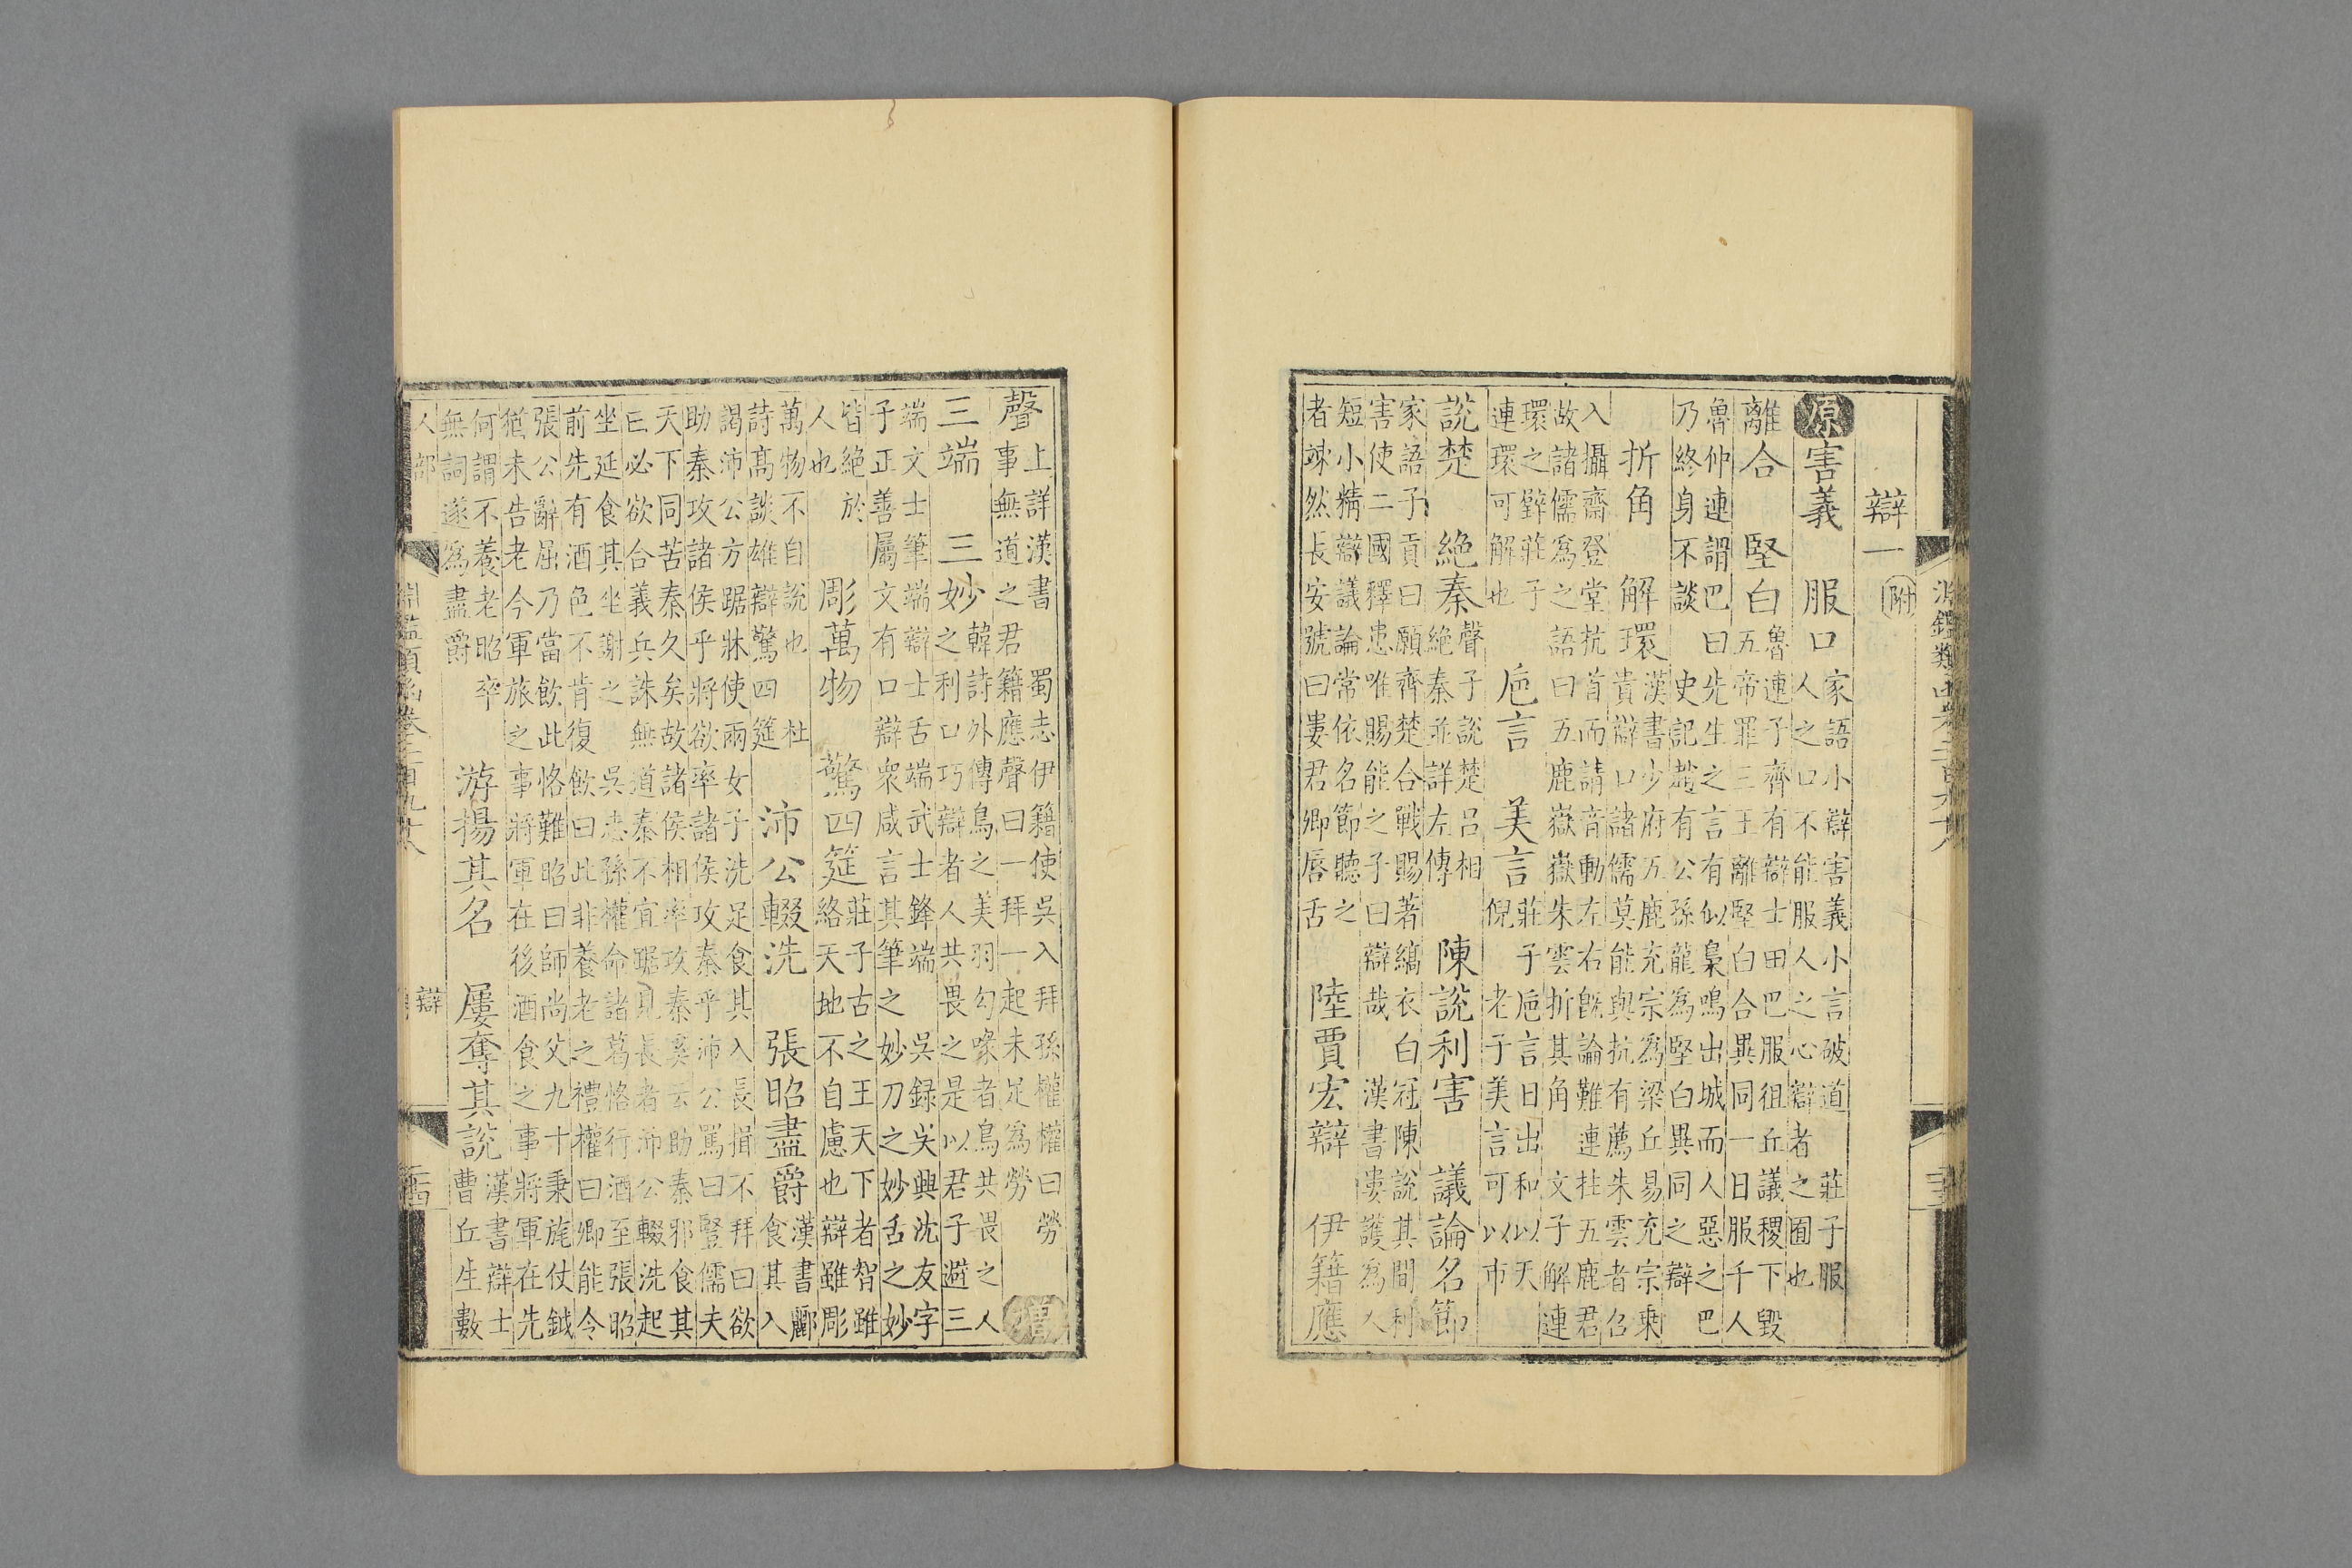 淵鑑類函卷二百九十八
辯一 附
原 害義 服口 家語小辯害義小言破道 莊子服
人之口不能服人之心辯者之囿也
離合 堅白 魯連子齊有辯士田巴服徂丘議稷下毀
五帝罪三王離堅白合異同一日服千人
魯仲連謂巴曰先生之言有似梟鳴出城而人惡之巴
乃終身不談 史記趙有公孫龍爲堅白異同之辯
折角 解環 漢書少府五鹿充宗爲梁丘易充宗乘
貴辯口諸儒莫能與抗有薦朱雲者召
入攝齋登堂抗首而請音動左右旣論難連拄五鹿君
故諸儒爲之語曰五鹿嶽嶽朱雲折其角 文子解連
環之辥莊子
連環可解也 巵言 美言 莊子巵言日出和以天
倪 老子美言可以市
說楚 絶秦 聲子說楚呂相
絶秦並詳左傳 陳說利害 議論名節
家語子貢曰願齊楚合戰賜著縞衣白冠陳說其間利
害使二國釋患唯賜能之子曰辯哉 漢書婁護爲人
短小精辯議論常依名節聽之
者竦然長安號曰婁君卿唇舌 陸賈宏辯 伊籍應
聲 上詳漢書 蜀志伊籍使吳入拜孫權權曰勞
事無道之君籍應聲曰一拜一起未足爲勞 增
三端 三妙 韓詩外傳鳥之美羽勾喙者鳥共畏之人
之利口巧辯者人共畏之是以君子避三
端文士筆端辯士舌端武士鋒端 吳録吳興沈友字
子正善屬文有口辯衆咸言其筆之妙刀之妙舌之妙
皆絶於
人也 彫萬物 驚四筵 莊子古之王天下者智雖
絡天地不自慮也辯雖彫
萬物不自說也 杜
詩髙談雄辯驚四筵 沛公輟洗 張昭盡爵 漢書酈
食其入
謁沛公方踞牀使兩女子洗足食其入長揖不拜曰欲
助秦攻諸侯乎將欲率諸侯攻秦乎沛公罵曰豎儒夫
天下同苦秦久矣故諸侯相率攻秦奚云助秦邪食其
曰必欲合義兵誅無道秦不宜踞見長者沛公輟洗起
坐延食其坐謝之 吳志孫權命諸葛恪行酒至張昭
前先有酒色不肯復飲曰此非養老之禮權曰卿能令
張公辭屈乃當飲此恪難昭曰師尚父九十秉旄仗鉞
猶未告老今軍旅之事將軍在後酒食之事將軍在先
何謂不養老昭卒
無詞遂爲盡爵 游揚其名 屢奪其說 漢書辯士
曹丘生數
人部 淵鑑類函卷二百九十八 辯